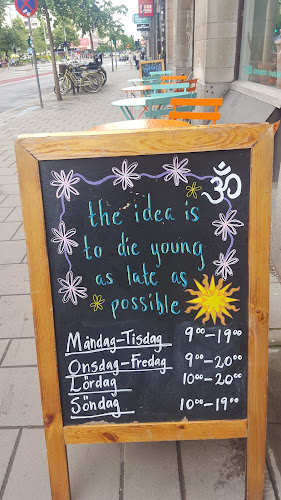 ॐ
the idea is
to die young
as late as
possible
Måndag-Tisdag 9⁰⁰-19⁰⁰
Onsdag-Fredag 9⁰⁰-20⁰⁰
Lördag 10⁰⁰-20⁰⁰
Söndag 10⁰⁰-19⁰⁰